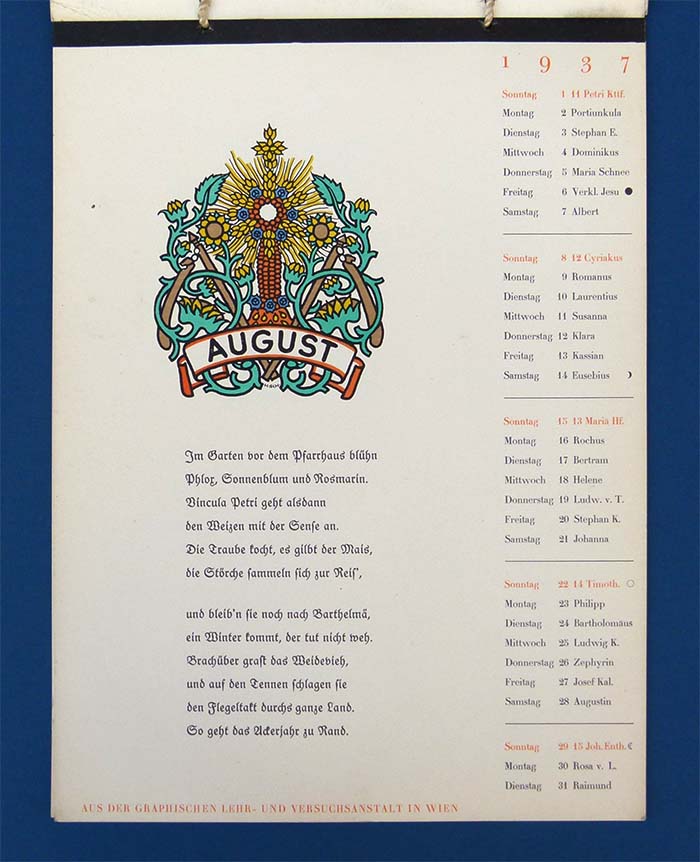 AUGUST
Im Garten vor dem Pfarrhaus blühn
Phlox, Sonnenblum und Rosmarin.
Vincula Petri geht alsdann
den Weizen mit der Sense an.
Die Traube kocht, es gilbt der Mais,
die Störche sammeln sich zur Reis',
und bleib'n sie noch nach Barthelmä,
ein Winter kommt, der tut nicht weh.
Brachüber grast das Weidevieh,
und auf den Tennen schlagen sie
den Flegeltakt durchs ganze Land.
So geht das Ackerjahr zu Rand.
1 9 3 7
Sonntag 1 11 Petri Kttf.
Montag 2 Portiunkula
Dienstag 3 Stephan E.
Mittwoch 4 Dominikus
Donnerstag 5 Maria Schnee
Freitag 6 Verkl. Jesu
Samstag 7 Albert
Sonntag 8 12 Cyriakus
Montag 9 Romanus
Dienstag 10 Laurentius
Mittwoch 11 Susanna
Donnerstag 12 Klara
Freitag 13 Kassian
Samstag 14 Eusebius
Sonntag 15 13 Maria Hf.
Montag 16 Rochus
Dienstag 17 Bertram
Mittwoch 18 Helene
Donnerstag 19 Ludw. v. T.
Freitag 20 Stephan K.
Samstag 21 Johanna
Sonntag 22 14 Timoth.
Montag 23 Philipp
Dienstag 24 Bartholomäus
Mittwoch 25 Ludwig K.
Donnerstag 26 Zephyrin
Freitag 27 Josef Kal.
Samstag 28 Augustin
Sonntag 29 15 Joh. Enth.
Montag 30 Rosa v. L.
Dienstag 31 Raimund
AUS DER GRAPHISCHEN LEHR- UND VERSUCHSANSTALT IN WIEN